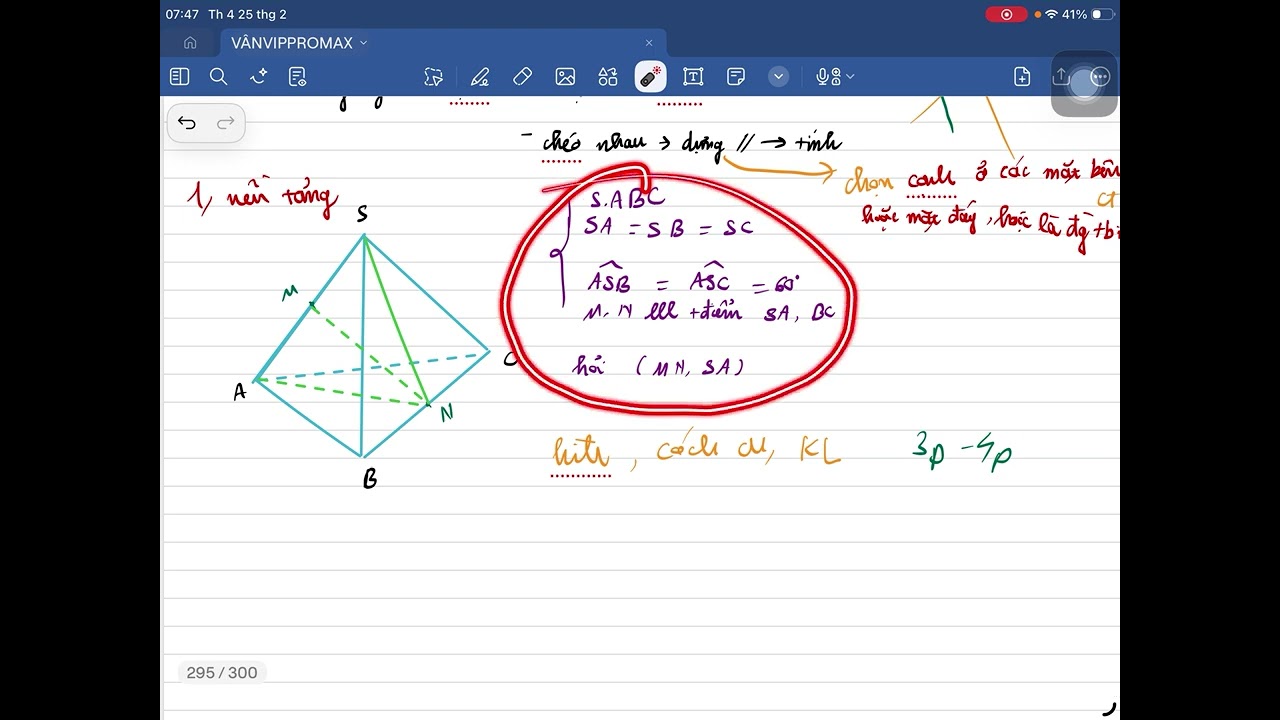 07:47 Th 4 25 thg 2
41%
VÂNVIPPROMAX
- chéo nhau → dựng // → tính
chọn cạnh ở các mặt bên
hoặc mặt đáy, hoặc là đg tb
1, nền tảng
S.ABC
SA = SB = SC
ASB = ASC = 60°
M, N lll tđiểm SA, BC
hỏi (MN, SA)
S
M
A
C
N
B
hình, cách cm, KL
3p - 4p
295 / 300